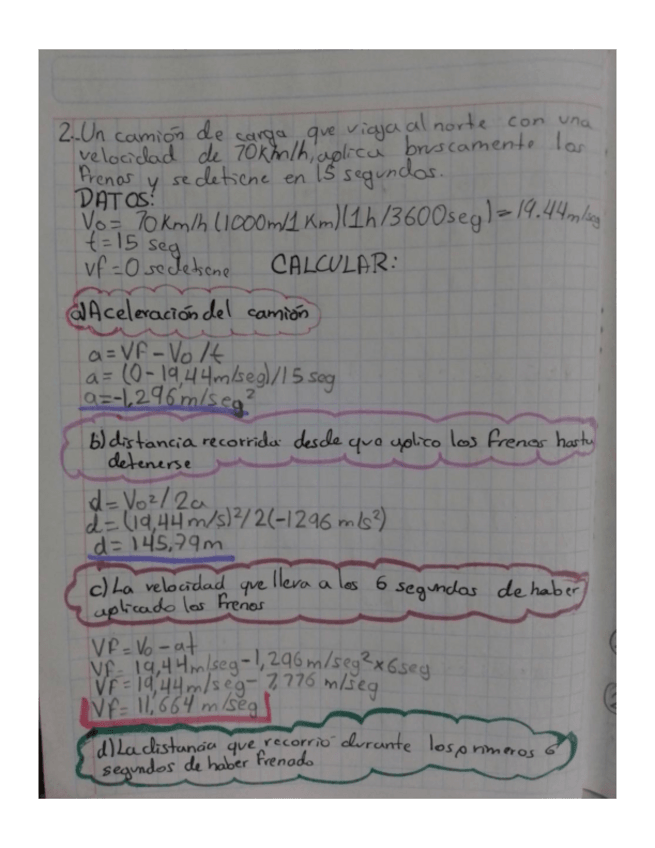 2.-Un camión de carga que viaja al norte con una
velocidad de 70Km/h, aplica bruscamente los
frenos y se detiene en 15 segundos.
DATOS:
Vo= 70 Km/h (1000m/1 Km)(1h/3600seg)=19.44m/seg
t=15 seg
vf=0 se detiene CALCULAR:
a)Aceleración del camión
a=Vf-Vo/t
a= (0-19,44m/seg)/15 seg
a=-1,296m/seg²
b)distancia recorrida desde que aplico los frenos hasta
detenerse
d=Vo²/2a
d=(19,44 m/s)²/2(-1296 m/s²)
d= 145,79m
c)La velocidad que lleva a los 6 segundos de haber
aplicado los frenos
Vf=Vo-at
Vf= 19,44m/seg-1,296m/seg²x6seg
Vf=19,44m/seg-7,776 m/seg
Vf= 11,664 m/seg
d)La distancia que recorrió durante los primeros 6
segundos de haber frenado